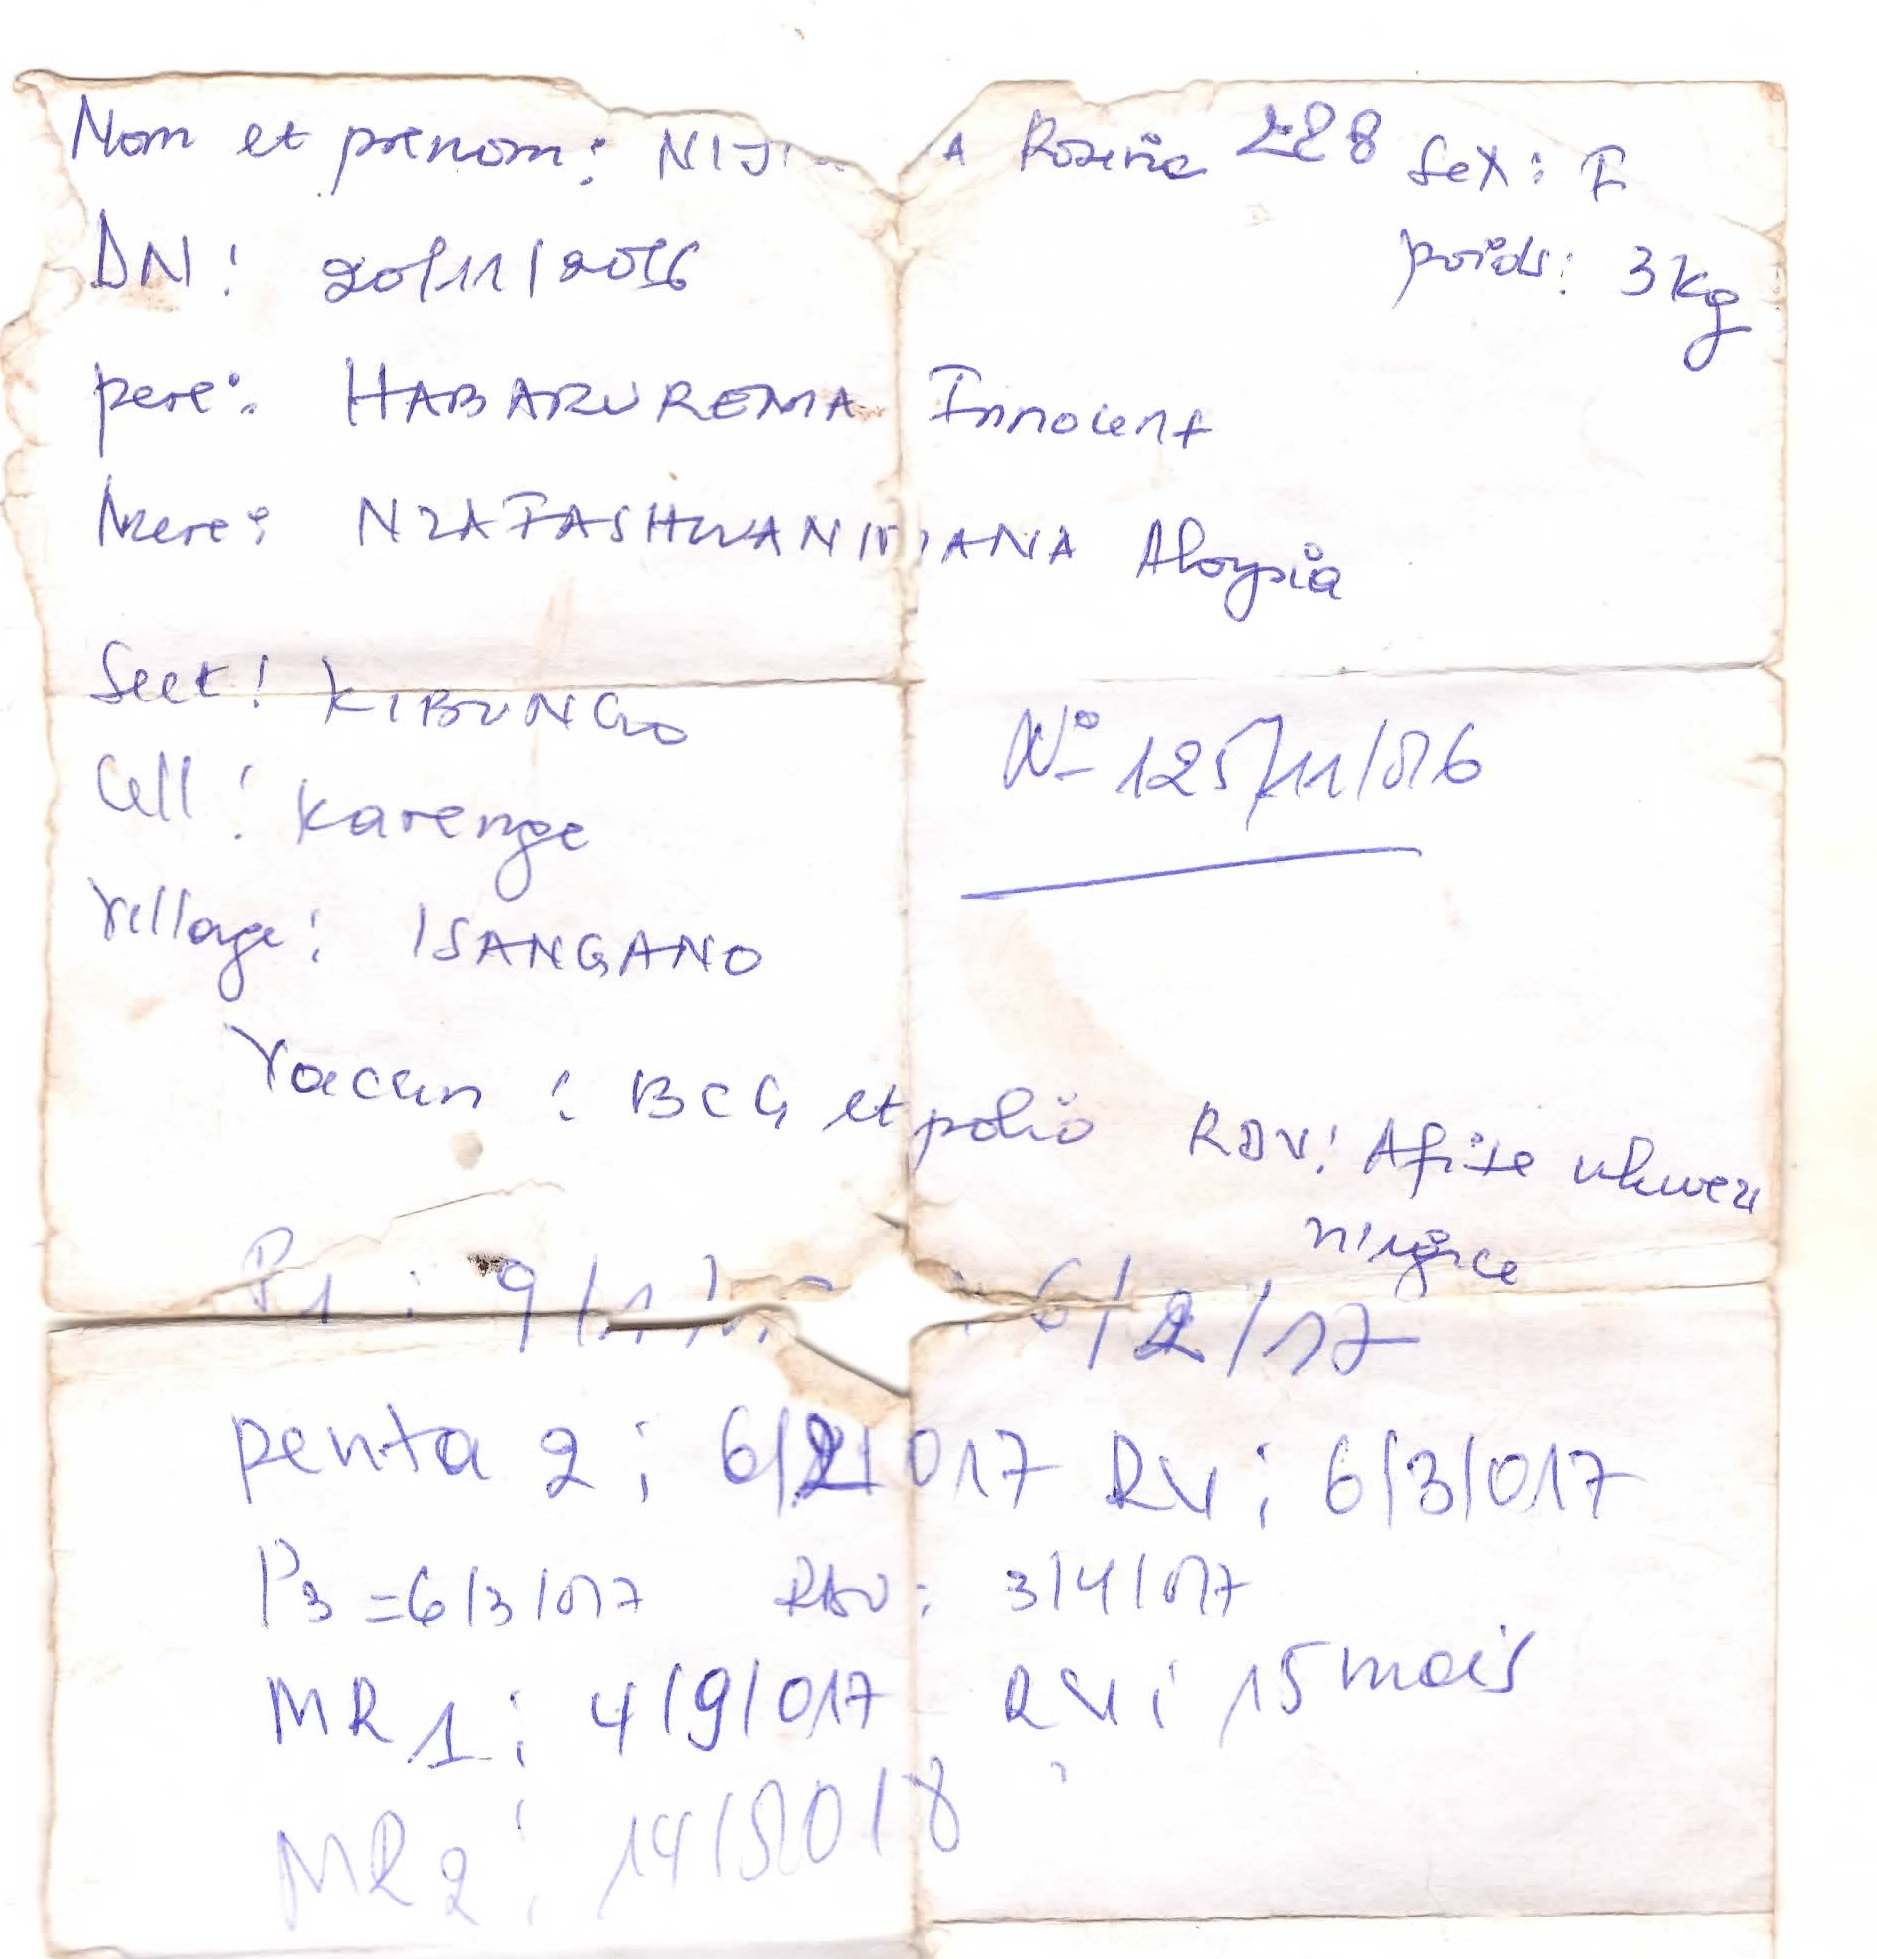 Nom et prenom: A Rosine 228 Sex: F
DN: 20/11/2016 poids: 3kg
pere: HABARUREMA Innocent
Mere: Aloysia
Sect: KIBUNGO
Cell: Karenge N° 125/11/016
Village: ISANGANO
Vaccin: BCG et polio RDV: Afite ukwezi
P1: 6/2/17
penta 2: 6/2/017 RV: 6/3/017
P3 = 6/3/017 RDV: 3/4/017
MR1: 4/9/017 RV: 15 mois
MR2: